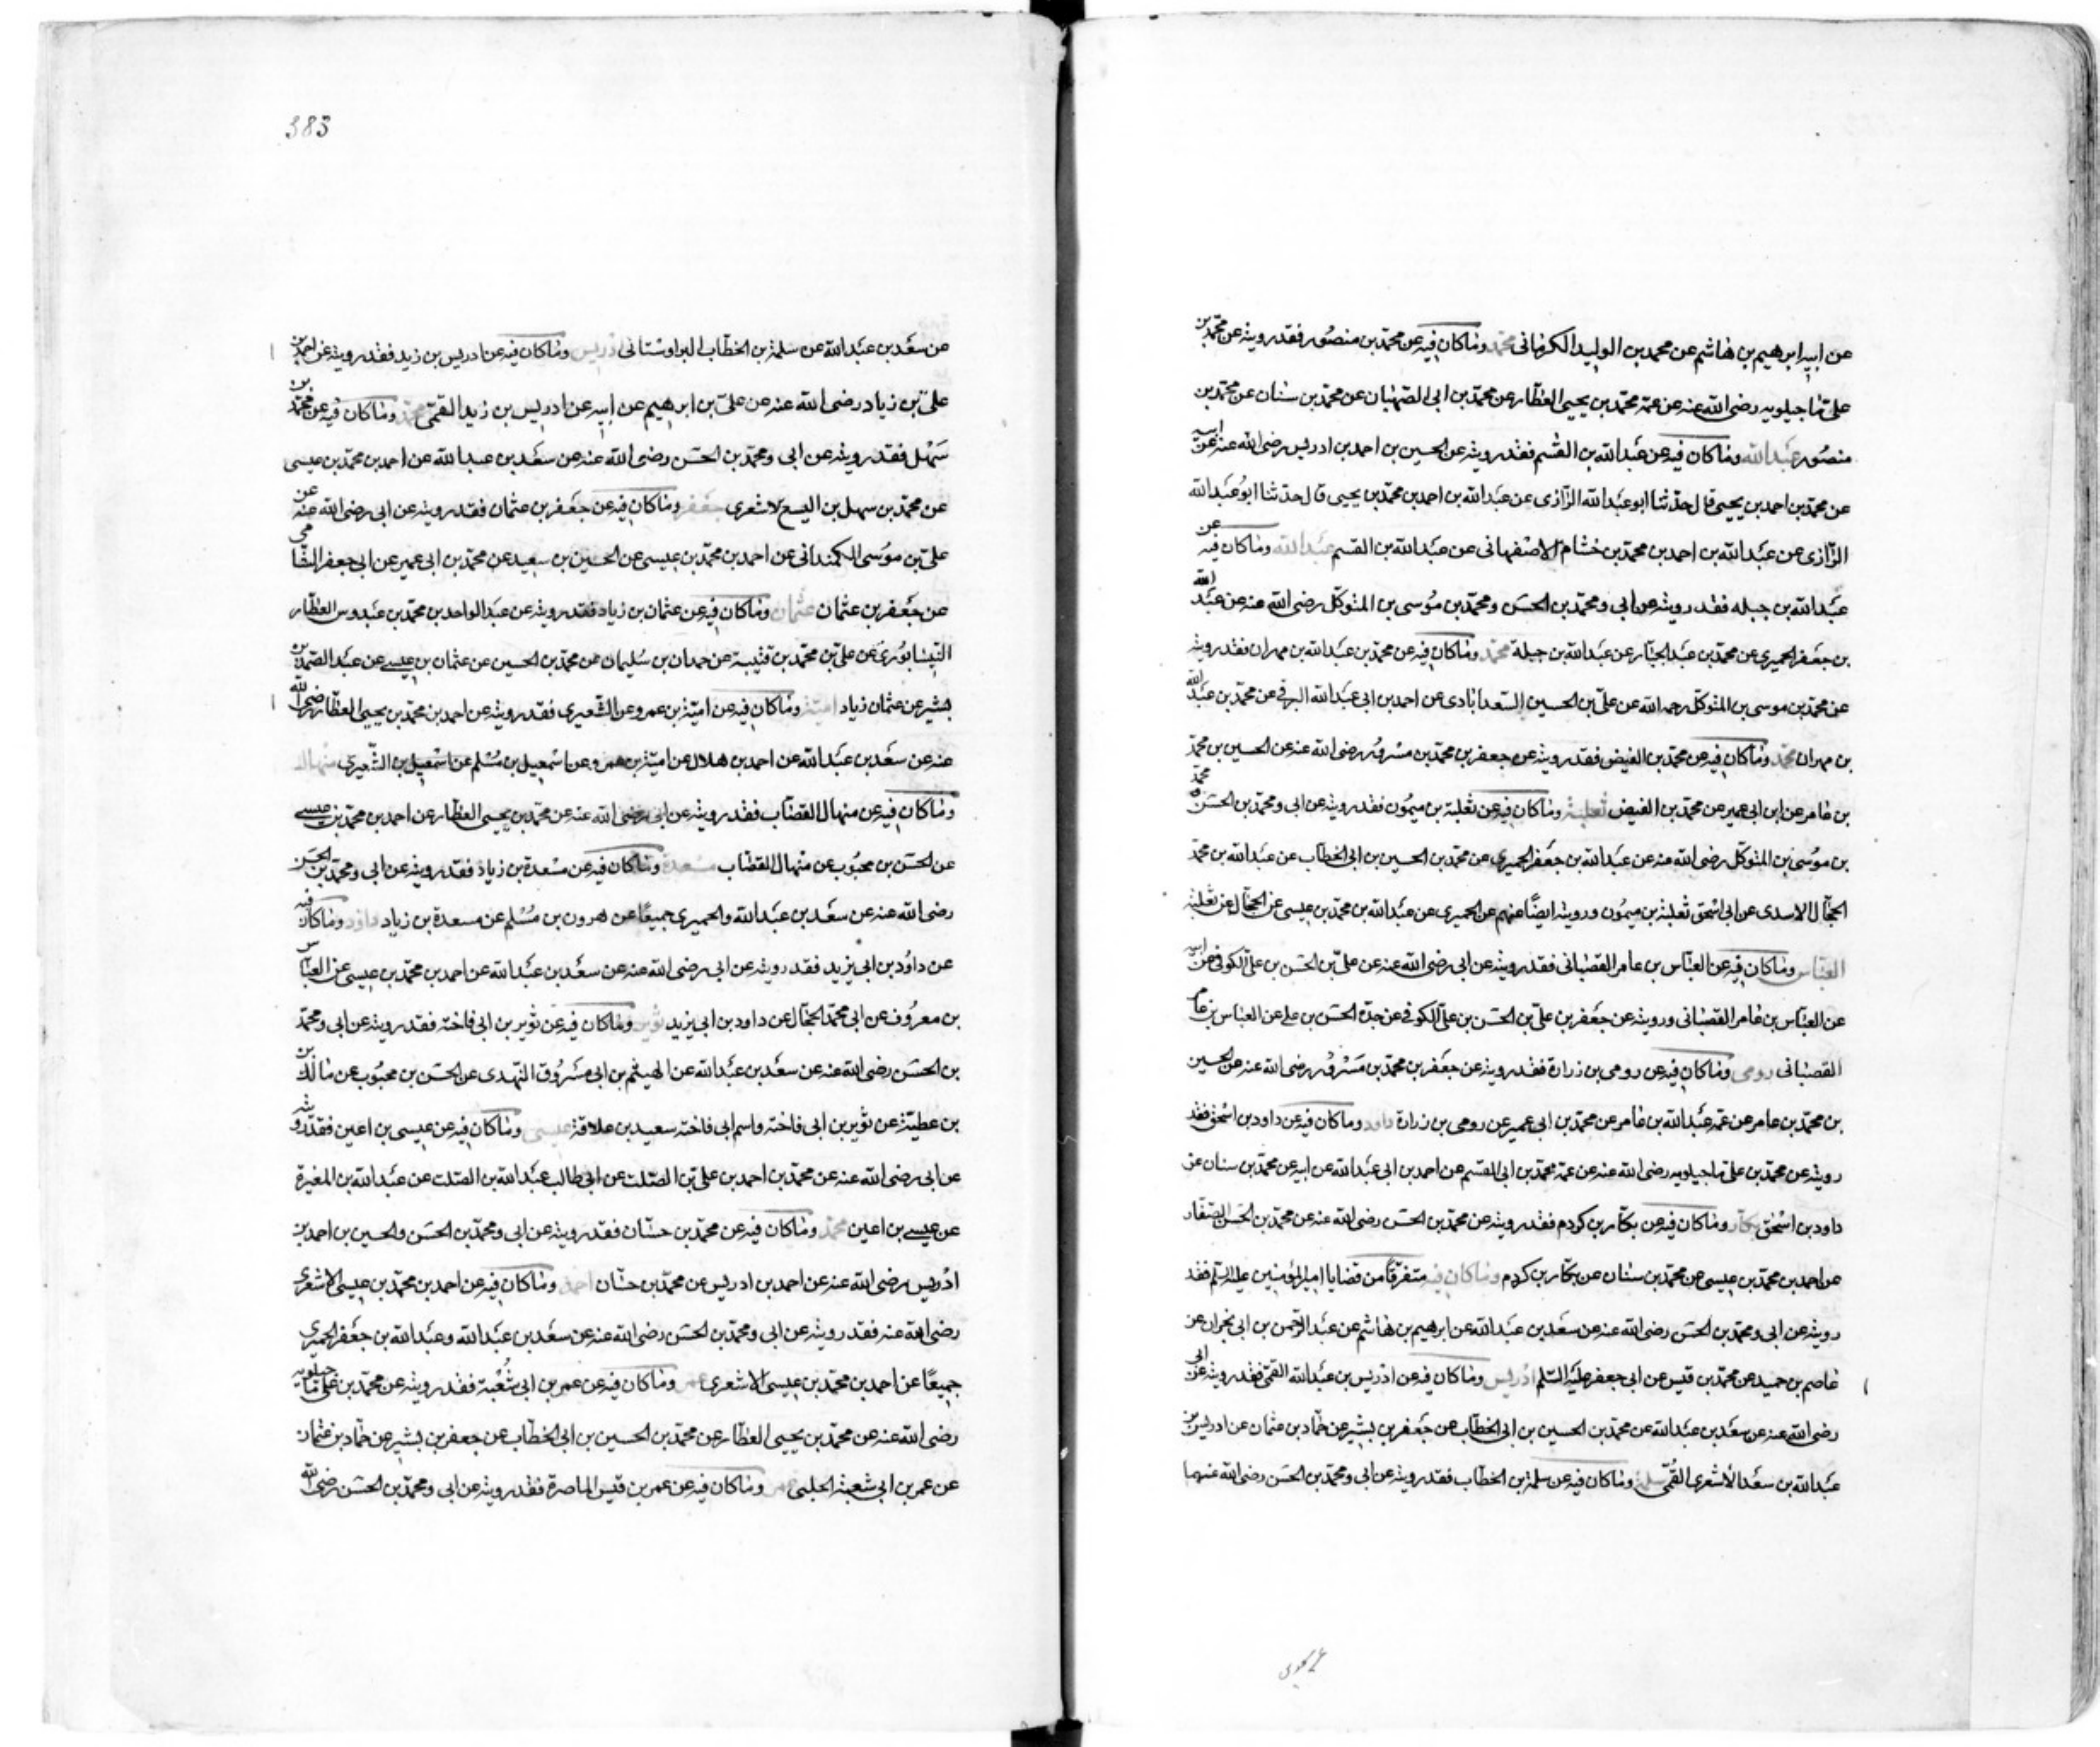 عن ابيه ابرهيم بن هاشم عن محمد بن الوليد الكرمانى محمد وماكان فيه عن محمّد بن منصُور فقد رويته عن محمّد بن
علىّ ماجيلويه رضى الله عنه عن عمّه محمّد بن يحيى العطّار عن محمّد بن ابى الصهبان عن محمّد بن سنان عن محمّد بن
منصُور عبدالله وماكان فيه عن عبدالله بن القسم فقد رويته عن الحسين بن احمد بن ادريس رضى الله عنه عن ابيه
عن محمّد بن احمد بن يحيى قال حدّثنا ابو عبدالله الرّازى عن عبدالله بن احمد بن محمّد بن يحيى قال حدثنا ابوُ عبدالله
الرّازى عن عبدالله بن احمد بن محمّد بن خشنام الاصفهانى عن عبدالله بن القسم عبدالله وماكان فيه عن
عبدالله بن جبله فقد رويته عن ابى ومحمّد بن الحسَن ومحمّد بن مُوسى بن المتوكّل رضى الله عنه عن عبد الله
بن جعفر الحميرى عن محمّد بن عبدالجبّار عن عبدالله بن جبلة محمد وماكان فيه عن محمّد بن عبدالله بن مهران فقد رويته
عن محمّد بن موسى بن المتوكّل رحمه الله عن علىّ بن الحسين السّعدابادى عن احمد بن ابى عبدالله البرقى عن محمّد بن عبد الله
بن مهران محمّد وماكان فيه عن محمّد بن الفيض فقد رويته عن جعفر بن محمّد بن مسرُور رضى الله عنه عن الحسين بن محمّد
بن عامر عن ابن ابى عمير عن محمّد بن الفيض ثعلبة وماكان فيه عن ثعلبة بن ميمُون فقد رويته عن ابى ومحمّد بن الحسَن ومحمّد
بن موُسى بن المتوكّل رضى الله عنه عن عبدالله بن جعفر الحميرى عن محمّد بن الحسين بن ابى الخطّاب عن عبدالله بن محمّد
الحجّال الاسدى عن ابى اسحق ثعلبة بن ميمُون ورويته ايضًا عنهم عن الحميرى عن عبدالله بن محمّد بن عيسى عن الحجّال عن ثعلبة
العبّاس وماكان فيه عن العبّاس بن عامر القصبانى فقد رويته عن ابى رضى الله عنه عن علىّ بن الحسن بن علىّ الكوفى عن ابيه
عن العبّاس بن عامر القصبانى ورويته عن جعفر بن علىّ بن الحسَن بن علىّ الكوفى عن جدّه الحسَن بن على عن العبّاس بن عامر
القصبانى رومى وماكان فيه عن رومى بن زرارة فقد رويته عن جعفر بن محمّد بن مَسْرُور رضى الله عنه عن الحسين
بن محمّد بن عامر عن عمّه عبدالله بن عامر عن محمّد بن ابى عمير عن رومى بن زرارة داود وماكان فيه عن داود بن اسحق فقد
رويته عن محمّد بن علىّ ماجيلويه رضى الله عنه عن عمّه محمّد بن ابى القسم عن احمد بن ابى عبدالله عن ابيه عن محمّد بن سنان عن
داود بن اسْحق بكّار وماكان فيه عن بكّار بن كردم فقد رويته عن محمّد بن الحسَن رضى الله عنه عن محمّد بن الحسَن الصفّار
عن احمد بن محمّد بن عيسى عن محمّد بن سنان عن بكّار بن كردم وماكان فيه متفرّقًا من قضايا امير المؤمنين عليه السّلم فقد
رويته عن ابى ومحمّد بن الحسَن رضى الله عنه عن سعد بن عبدالله عن ابرهيم بن هاشم عن عبد الرّحمن بن ابى نجران عن
عاصم بن حميد عن محمّد بن قيس عن ابى جعفر عليه السّلم ادريس وماكان فيه عن ادريس بن عبدالله القمّى فقد رويته عن ابى
رضى الله عنه عن سعد بن عبدالله عن محمّد بن الحسين بن ابى الخطّاب عن جعفر بن بشير عن حمّاد بن عثمان عن ادريس بن
عبدالله بن سعد الاشعرى القُمّى سلمة وماكان فيه عن سلمة بن الخطّاب فقد رويته عن ابى ومحمّد بن الحسَن رضى الله عنهما
383
عن سعد بن عبدالله عن سلمة بن الخطّاب البراوستانى ادريس وماكان فيه عن ادريس بن زيد فقد رويته عن احمد بن
علىّ بن زياد رضى الله عنه عن علىّ بن ابرهيم عن ابيه عن ادريس بن زيد القمّى محمّد وماكان فيه عن محمّد بن
سَهْل فقد رويته عن ابى ومحمّد بن الحسَن رضى الله عنه عن سعد بن عبدالله عن احمد بن محمّد بن عيسى
عن محمّد بن سهل بن اليسع لاشعرى جعفر وماكان فيه عن جعفر بن عثمان فقد رويته عن ابى رضى الله عنه عن
علىّ بن موسى الكمندانى عن احمد بن محمّد بن عيسى عن الحسين بن سعيد عن محمّد بن ابى عمير عن ابى جعفر الشامى
عن جعفر بن عثمان عثمان وماكان فيه عن عثمان بن زياد فقد رويته عن عبدالواحد بن محمّد بن عبدوس العطّار
النيسابُورىّ عن علىّ بن محمّد بن قتيبة عن حمدان بن سُليمان عن محمّد بن الحسين عن عثمان بن عيسى عن عبد الصّمد بن
بشير عن عثمان زياد اميّة وماكان فيه عن اميّة بن عمرو عن الشّعيرى فقد رويته عن احمد بن محمّد بن يحيى العطّار رضى الله
عنه عن سعد بن عبدالله عن احمد بن هلال عن اميّة بن عمرو عن اسْمعيل بن مُسْلم عن اسْمعيل بن الشّعيرى منهال
وماكان فيه عن منهال القصّاب فقد رويته عن ابى رضى الله عنه عن محمّد بن يحيى العطّار عن احمد بن محمّد بن عيسى
عن الحسَن بن محبُوب عن منهال القصّاب مسعدة وماكان فيه عن مسْعدة بن زياد فقد رويته عن ابى ومحمّد بن الحسَن
رضى الله عنه عن سعد بن عبدالله والحميرى جميعًا عن هرون بن مُسْلم عن مسعدة بن زياد داود وماكان فيه
عن داوُد بن ابى يزيد فقد رويته عن ابى رضى الله عنه عن سعد بن عبدالله عن احمد بن محمّد بن عيسى عن العبّاس
بن معروُف عن ابى محمّد الحجّال عن داود بن ابى يزيد ثوير وماكان فيه عن ثوير بن ابى فاخته فقد رويته عن ابى ومحمّد
بن الحسَن رضى الله عنه عن سعد بن عبدالله عن الهيثم بن ابى مسْرُوق النهدى عن الحسَن بن محبُوب عن مالك بن
بن عطيّة عن ثوير بن ابى فاخته واسم ابى فاخته سعيد بن علاقة عيسى وماكان فيه عن عيسى بن اعين فقد رويته
عن ابى رضى الله عنه عن محمّد بن احمد بن علىّ بن الصّلت عن ابى طالب عبدالله بن الصّلت عن عبدالله بن المغيرة
عن عيسى بن اعين محمّد وماكان فيه عن محمّد بن حسّان فقد رويته عن ابى ومحمّد بن الحسَن والحسين بن احمد بن
ادْريس رضى الله عنه عن احمد بن ادريس عن محمّد بن حسّان احمد وماكان فيه عن احمد بن محمّد بن عيسى الاشعرى
رضى الله عنه فقد رويته عن ابى ومحمّد بن الحسَن رضى الله عنه عن سعد بن عبدالله وعبدالله بن جعفر الحميرى
جميعًا عن احمد بن محمّد بن عيسى الاشعرى عمر وماكان فيه عن عمر بن ابى شُعْبة فقد رويته عن محمّد بن علىّ ماجيلويه
رضى الله عنه عن محمّد بن يحيى العطّار عن محمّد بن الحسين بن ابى الخطّاب عن جعفر بن بشير عن حمّاد بن عثمان
عن عمر بن ابى شعبة الحلبى عمر وماكان فيه عن عمر بن قيس الماصرة فقد رويته عن ابى ومحمّد بن الحسَن رضى الله